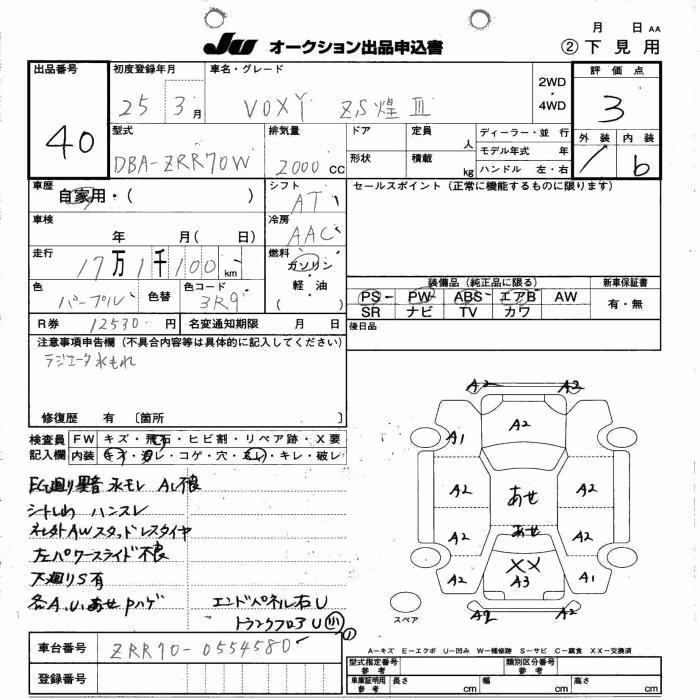 月 日 AA
JU オークション出品申込書 ② 下見用
出品番号 40
初度登録年月 25 3月
車名・グレード VOXY ZS煌Ⅲ
2WD・4WD
評価点 3
外装 内装 b
型式 DBA-ZRR70W
排気量 2000 cc
ドア 定員 人
形状 積載 kg
ディーラー・並行
モデル年式 年
ハンドル 左・右
車歴 自家用・( )
シフト AT
セールスポイント (正常に機能するものに限ります)
車検 年 月( 日)
冷房 AAC
走行 17万1千100 km
燃料 ガソリン・軽油 ( )
色 パープル 色替 色コード 3R9
装備品 (純正品に限る) 新車保証書
PS PW ABS エアB AW 有・無
SR ナビ TV カワ
R券 12530円 名変通知期限 月 日
後日品
注意事項申告欄 (不具合内容等は具体的に記入してください)
ラジエータ水もれ
修復歴 有 〔箇所 〕
検査員記入欄
FW キズ・飛石・ヒビ割・リペア跡・X要
内装 キズ・汚レ・コゲ・穴・スレ・キレ・破レ
EG廻り異音 水モレ AC不良
シートしわ ハンスレ
ネジ外AWスタッドレスタイヤ
左パワースライド不良
下廻りS有
各A.U.あせPハゲ
エンドパネル右U
トランクフロアU
A2 A2
A1 A2
A2 あせ A2
A2 あせ A2
A2 XX A3 A1
A2 A2
スペア
A-キズ E-エクボ U-凹み W-補修跡 S-サビ C-腐食 XX-交換済
車台番号 ZRR70-0554580
登録番号
型式指定番号 参考 類別区分番号 参考
車庫証明用 参考 長さ cm 幅 cm 高さ cm